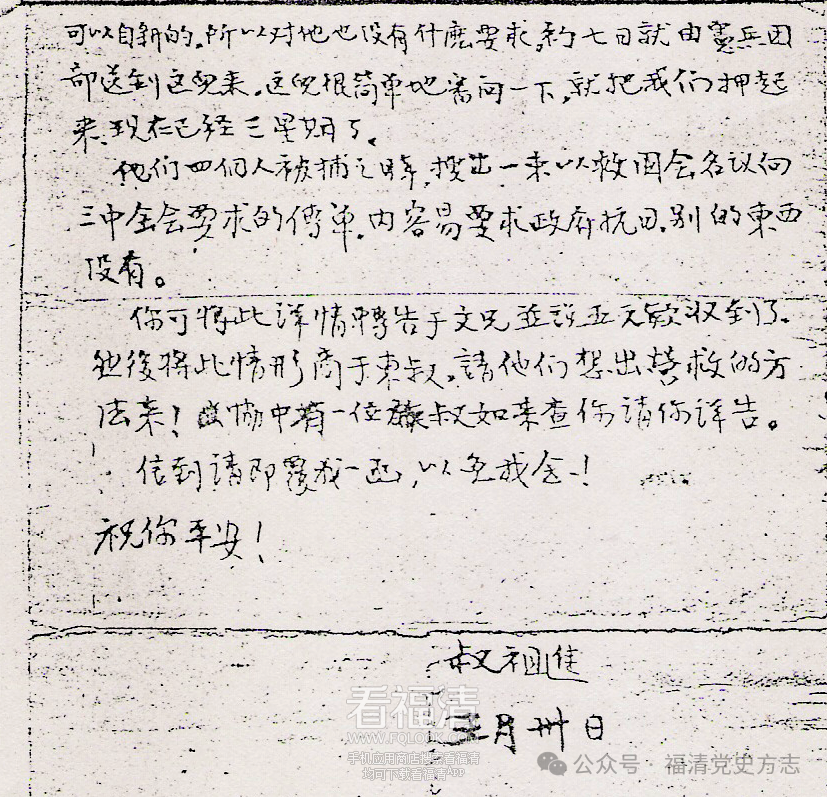 可以自新的,所以对他也没有什麽要求,約七日就由憲兵团
部送到这兒来,这兒很简单地審问一下,就把我们押起
来,现在已经三星期了。
他们四個人被捕之時,搜出一束以救囯会名议向
三中全会要求的傳单,内容是要求政府抗日,别的東西
没有。
你可將此详情轉告于文兄並說五元欵收到了。
然後將此情形商于東叔,請他们想出营救的方
法来!中有一位叔如来查你請你详告。
信到請即覆我一函,以免我念!
祝你平安!
叔祖進
三月卅日
看福清
WWW.FQLOOK.CN
手机应用商店搜索看福清
均可下载看福清App
公众号·福清党史方志